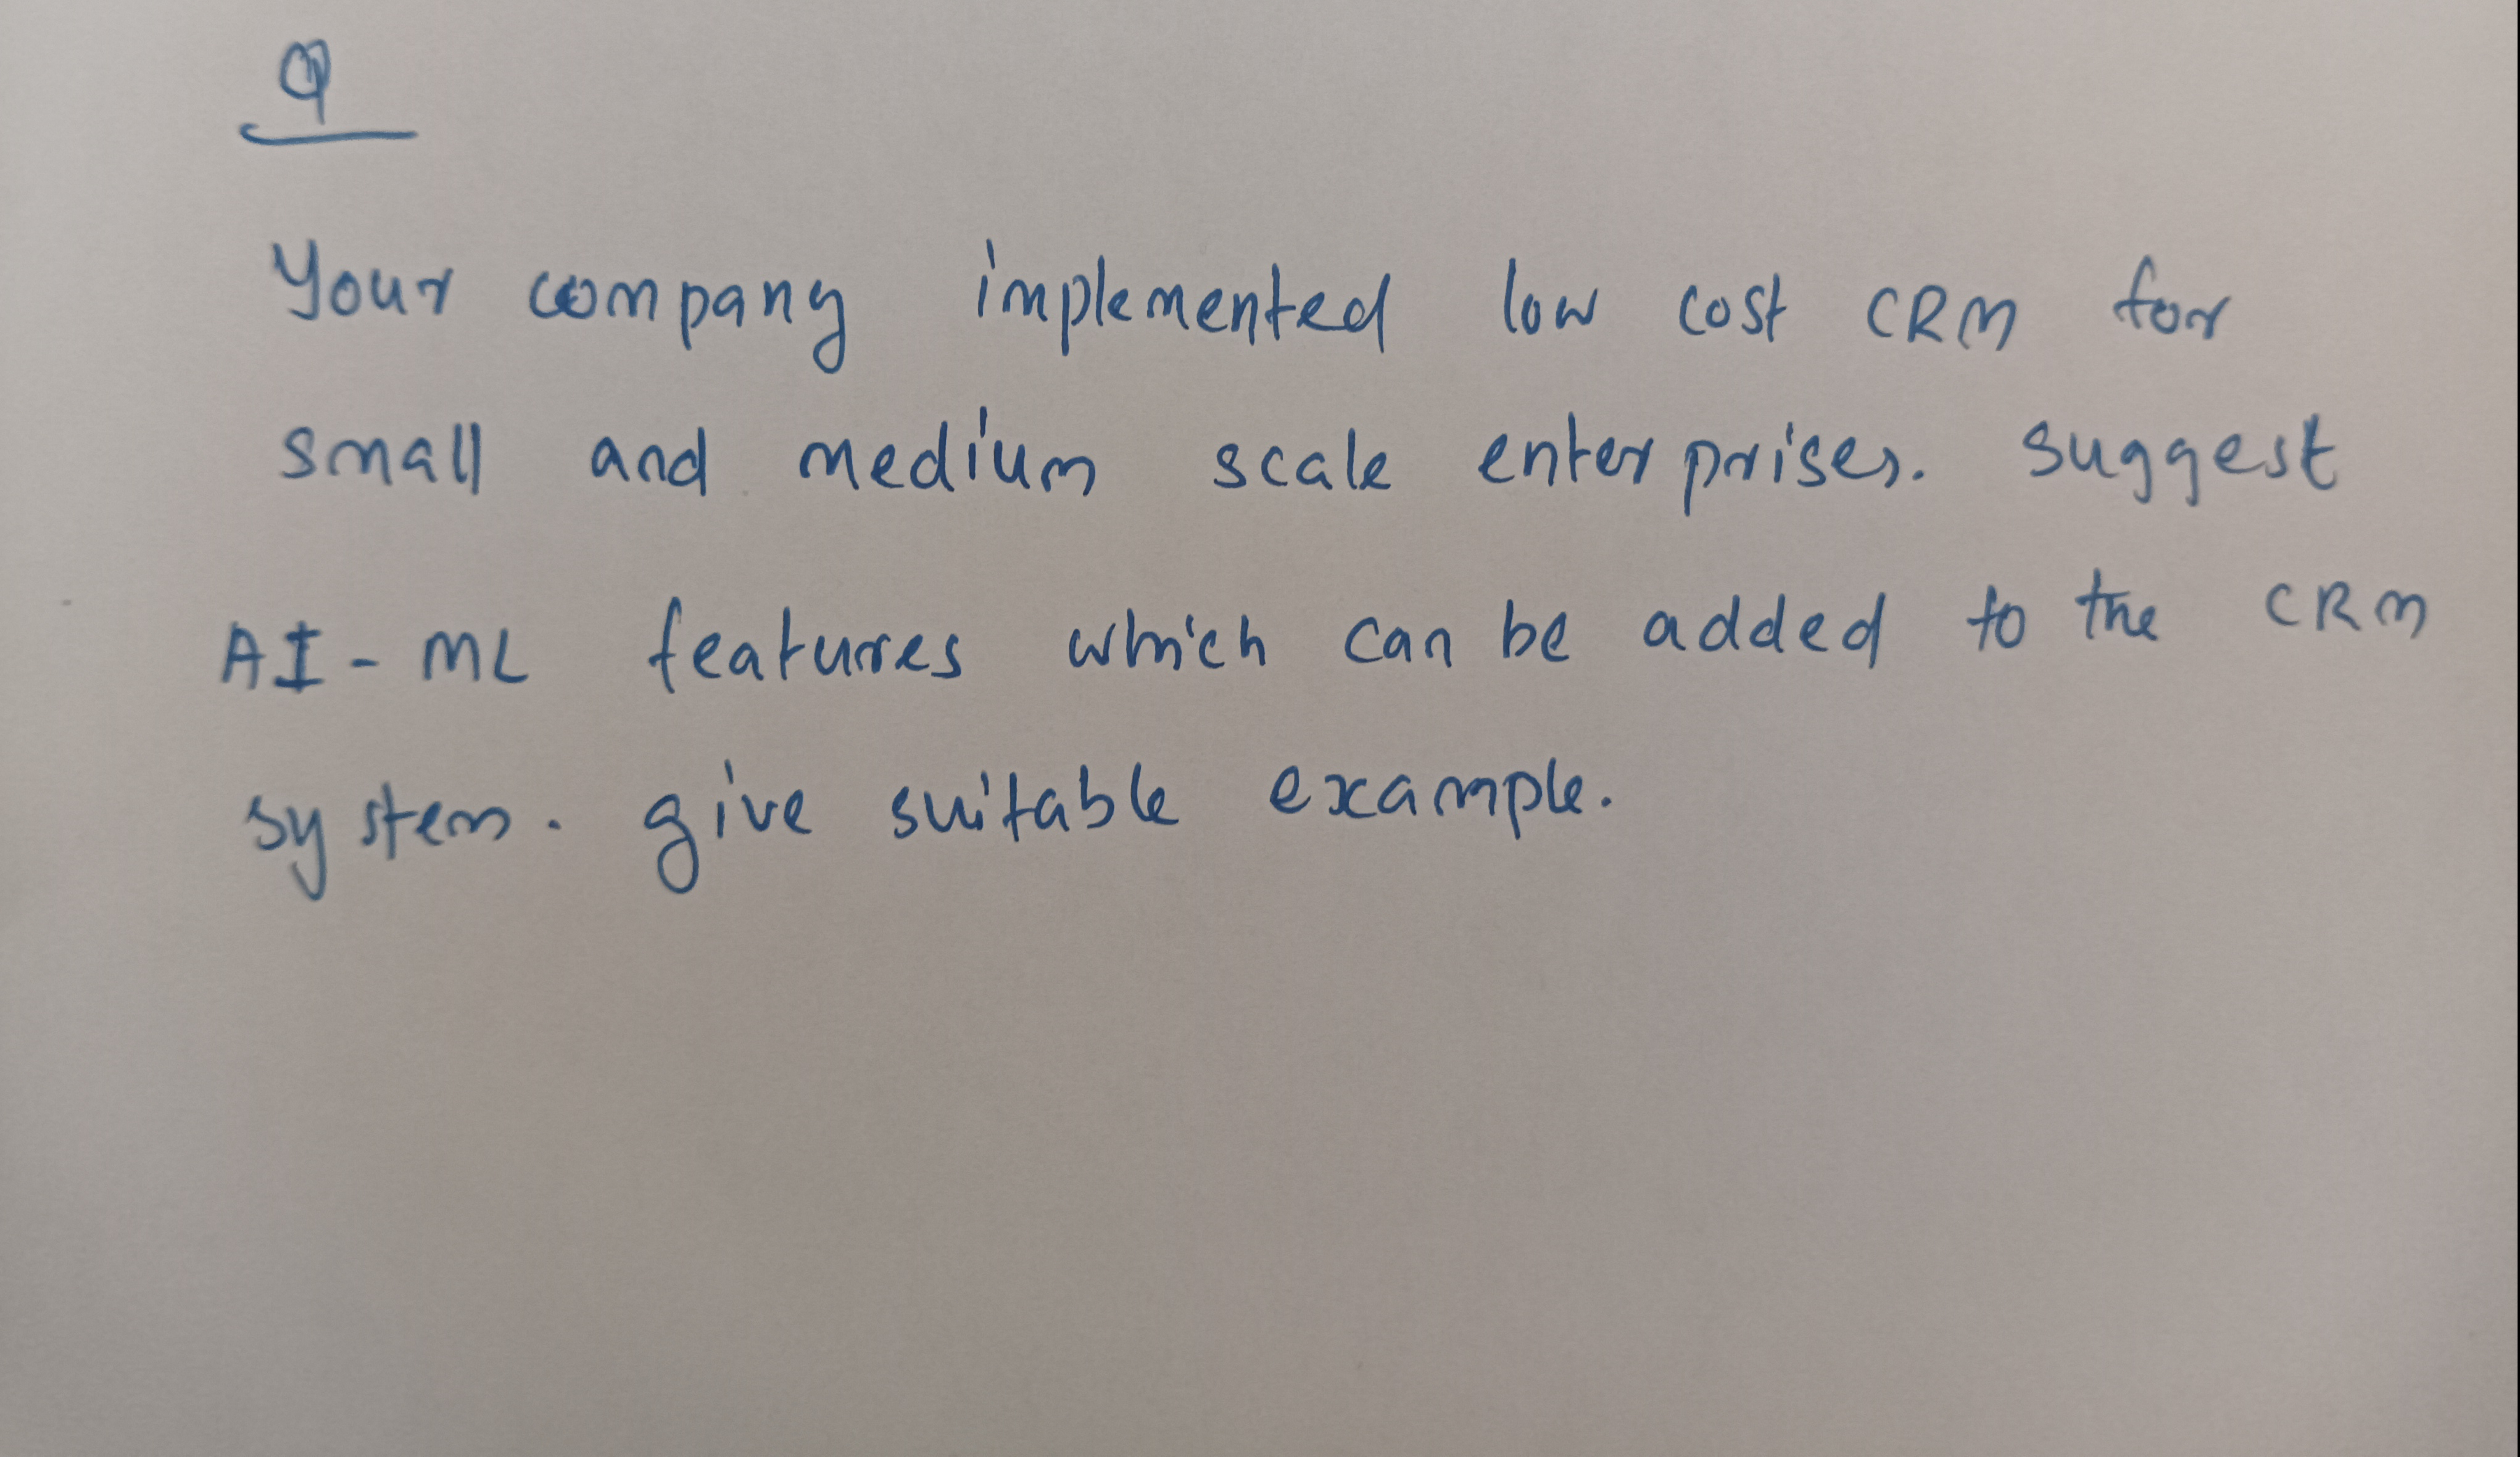 Q
Your company implemented low cost CRM for
small and medium scale enterprises. suggest
AI - ML features which can be added to the CRM
system. give suitable example.